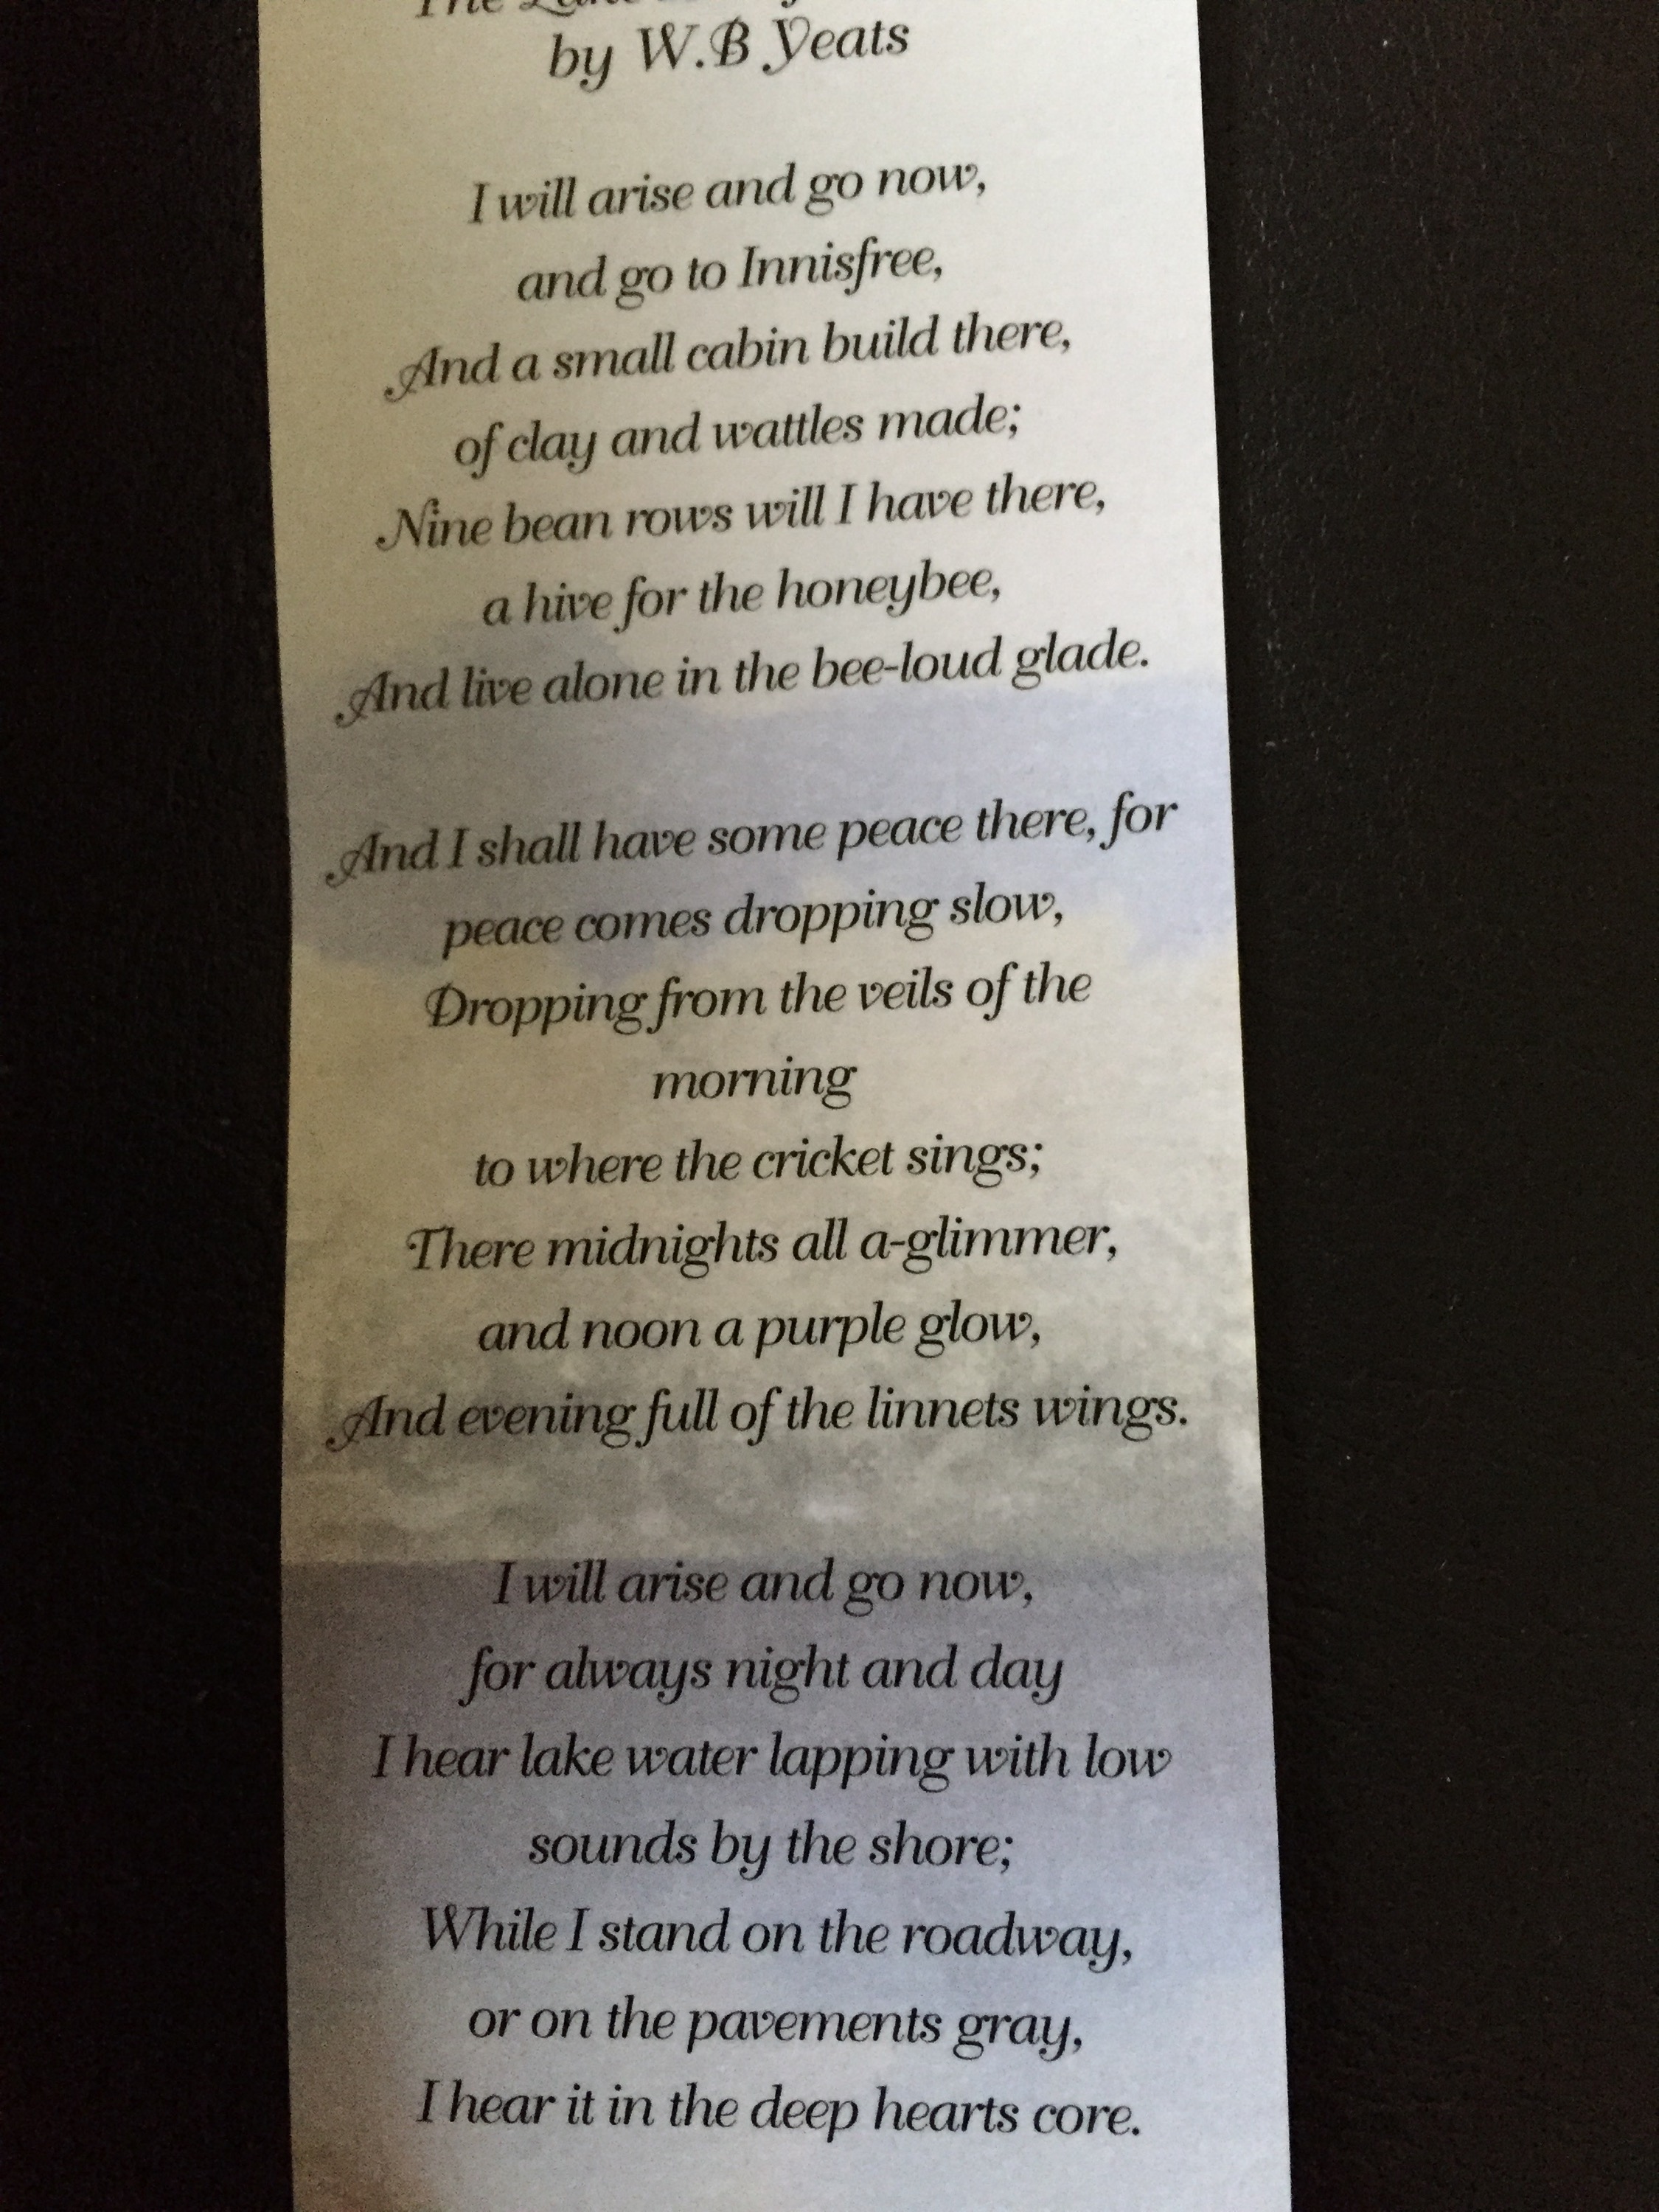 The Lake
by W.B Yeats
I will arise and go now,
and go to Innisfree,
And a small cabin build there,
of clay and wattles made;
Nine bean rows will I have there,
a hive for the honeybee,
And live alone in the bee-loud glade.
And I shall have some peace there, for
peace comes dropping slow,
Dropping from the veils of the
morning
to where the cricket sings;
There midnights all a-glimmer,
and noon a purple glow,
And evening full of the linnets wings.
I will arise and go now,
for always night and day
I hear lake water lapping with low
sounds by the shore;
While I stand on the roadway,
or on the pavements gray,
I hear it in the deep hearts core.